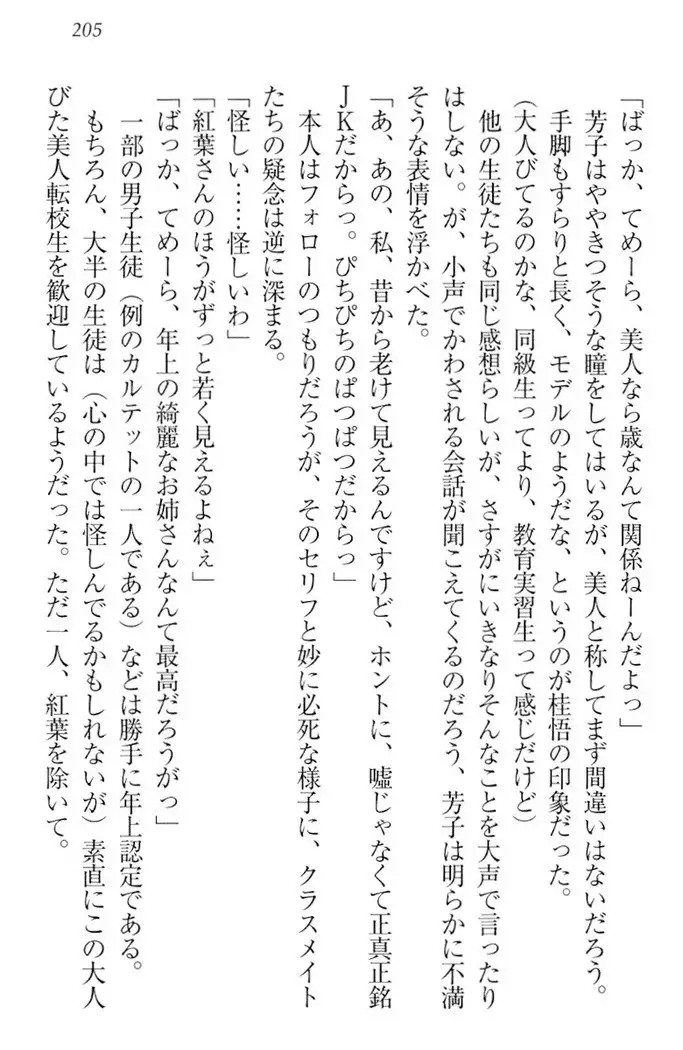 205
「ばっか、てめーら、美人なら歳なんて関係ねーんだよっ」
芳子はややきつそうな瞳をしてはいるが、美人と称してまず間違いはないだろう。
手脚もすらりと長く、モデルのようだな、というのが桂悟の印象だった。
（大人びてるのかな、同級生ってより、教育実習生って感じだけど）
他の生徒たちも同じ感想らしいが、さすがにいきなりそんなことを大声で言ったり
はしない。が、小声でかわされる会話が聞こえてくるのだろう、芳子は明らかに不満
そうな表情を浮かべた。
「あ、あの、私、昔から老けて見えるんですけど、ホントに、嘘じゃなくて正真正銘
ＪＫだからっ。ぴちぴちのぱつぱつだからっ」
本人はフォローのつもりだろうが、そのセリフと妙に必死な様子に、クラスメイト
たちの疑念は逆に深まる。
「怪しい……怪しいわ」
「紅葉さんのほうがずっと若く見えるよねぇ」
「ばっか、てめーら、年上の綺麗なお姉さんなんて最高だろうがっ」
一部の男子生徒（例のカルテットの一人である）などは勝手に年上認定である。
もちろん、大半の生徒は（心の中では怪しんでるかもしれないが）素直にこの大人
びた美人転校生を歓迎しているようだった。ただ一人、紅葉を除いて。